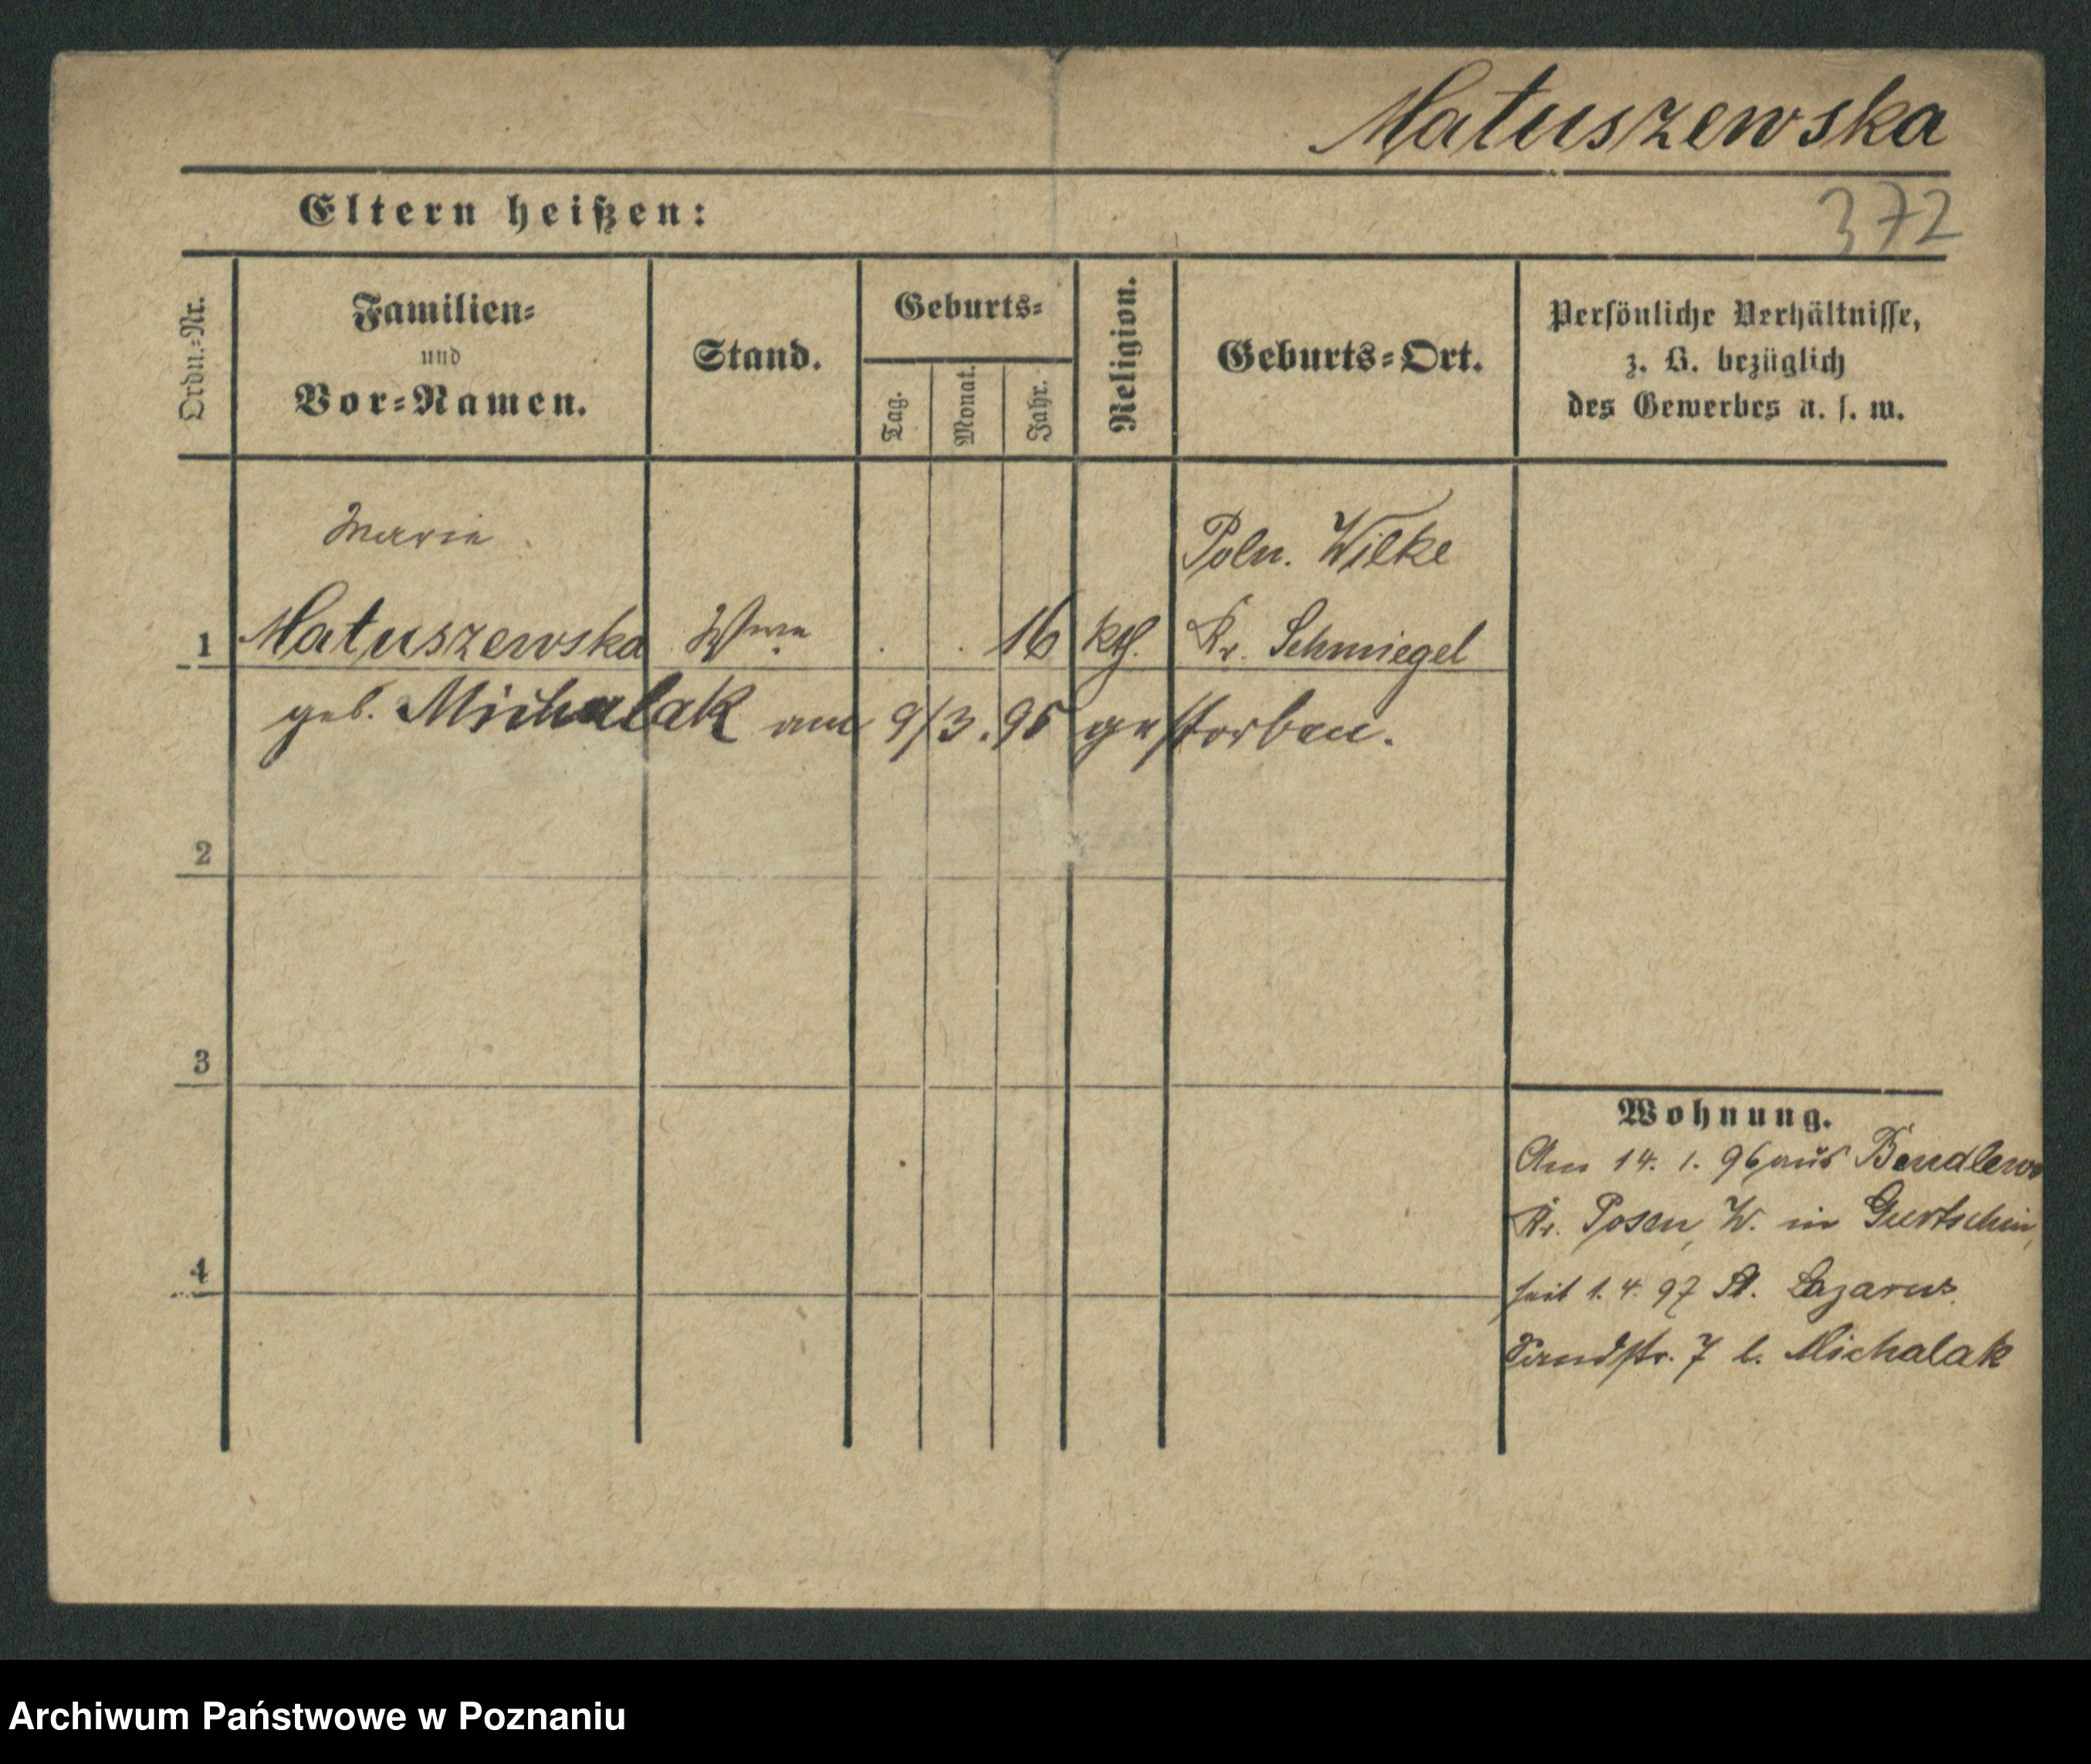 Matuszewska
Eltern heißen:
372
Ordn.-Nr.
Familien-
und
Vor-Namen.
Stand.
Geburts-
Tag.
Monat.
Jahr.
Religion.
Geburts-Ort.
Persönliche Verhältnisse,
z. B. bezüglich
des Gewerbes u. s. w.
Marie
Poln. Wilke
1 Matuszewska Wwe . . 16 kth. Kr. Schmiegel
geb. Michalak am 9/3.98 gestorben.
2
3
4
Wohnung.
Am 14. 1. 96 aus Bendlewo
Kr. Posen W. in Gurtschin,
seit 1. 4. 97 St. Lazarus
7 b. Michalak
Archiwum Państwowe w Poznaniu